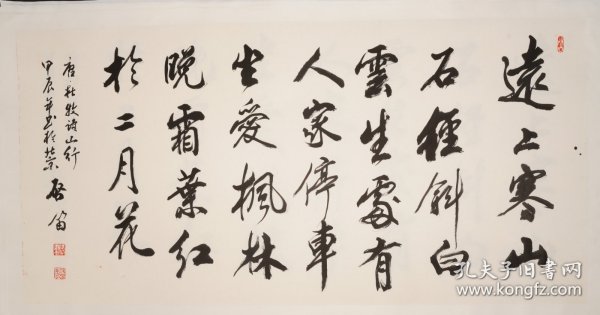 遠上寒山
石徑斜白
雲生處有
人家停車
坐愛楓林
晚霜葉紅
於二月花
唐杜牧詩山行
甲辰年書於北京
孔夫子旧书网
www.kongfz.com